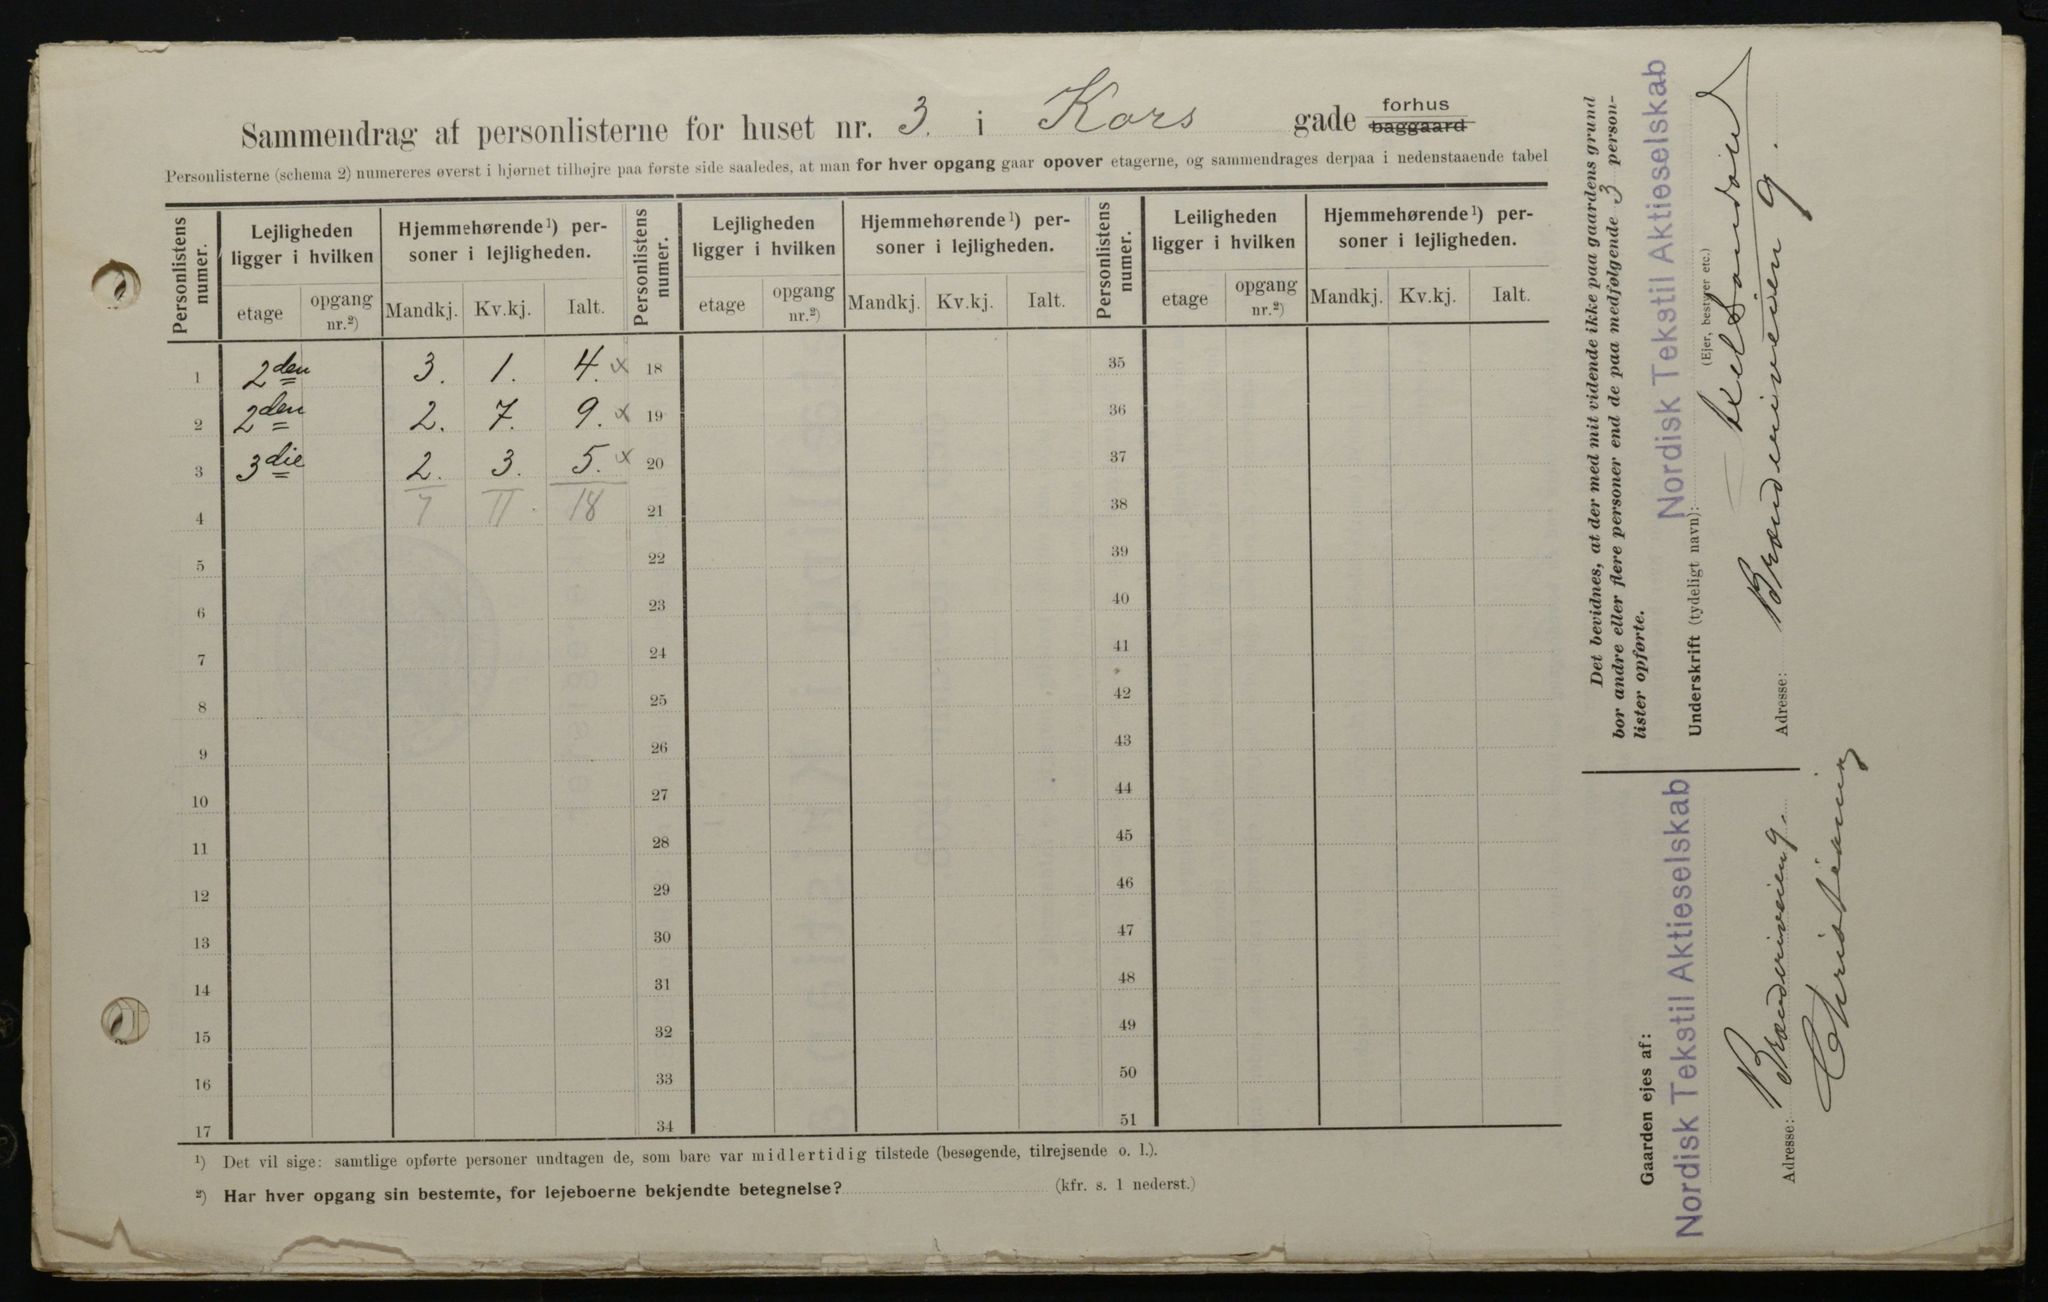 Sammendrag af personlisterne for huset nr. 3. i Kors gade forhus baggaard
Personlisterne (schema 2) numereres øverst i hjørnet tilhøjre paa første side saaledes, at man for hver opgang gaar opover etagerne, og sammendrages derpaa i nedenstaaende tabel
Personlistens numer. Lejligheden ligger i hvilken Hjemmehørende¹) personer i lejligheden. Personlistens numer. Lejligheden ligger i hvilken Hjemmehørende¹) personer i lejligheden. Personlistens numer. Leiligheden ligger i hvilken Hjemmehørende¹) personer i lejligheden.
etage opgang nr.²) Mandkj. Kv.kj. Ialt. etage opgang nr.²) Mandkj. Kv.kj. Ialt. etage opgang nr.²) Mandkj. Kv.kj. Ialt.
1 2den 3. 1. 4. x 18 35
2 2den 2. 7. 9. x 19 36
3 3die 2. 3. 5. x 20 37
4 7 11 18 21 38
5 22 39
6 23 40
7 24 41
8 25 42
9 26 43
10 27 44
11 28 45
12 29 46
13 30 47
14 31 48
15 32 49
16 33 50
17 34 51
¹) Det vil sige: samtlige opførte personer undtagen de, som bare var midlertidig tilstede (besøgende, tilrejsende o. l.).
²) Har hver opgang sin bestemte, for lejeboerne bekjendte betegnelse? (kfr. s. 1 nederst.)
Det bevidnes, at der med mit vidende ikke paa gaardens grund
bor andre eller flere personer end de paa medfølgende 3 person-
lister opførte.
Nordisk Tekstil Aktieselskab
Underskrift (tydeligt navn):
(Ejer, bestyrer etc.)
Adresse: Brænderiveien 9.
Gaarden ejes af:
Nordisk Tekstil Aktieselskab
Adresse: Brænderiveien 9.
Christiania